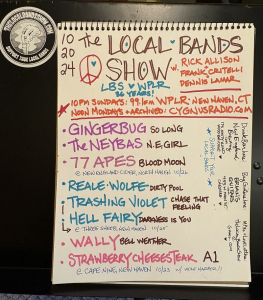 10
20
24
The LOCAL BANDS
SHOW
w/ RICK ALLISON
FRANK CRITELLI
DENNIS LAMAR
LBS ♥ WPLR
36 YEARS!
10PM SUNDAYS: 99.1FM WPLR, NEW HAVEN, CT
NOON MONDAYS + ARCHIVED: CYGNUSRADIO.COM
• GINGERBUG SO LONG
• THE NEYBAS N.E. GIRL
• 77 APES BLOOD MOON
@ NEW ENGLAND CIDER, NORTH HAVEN 10/26
• REALE-WOLFE DIRTY POOL
• TRASHING VIOLET CHASE THAT
FEELING
• HELL FAIRY DARKNESS IS YOU
@ THREE SHEETS, NEW HAVEN 10/25
• WALLY BELL WEATHER
• STRAWBERRY CHEESESTEAK A1
@ CAFE NINE, NEW HAVEN 10/23
SUPPORT YOUR
LOCAL BANDS